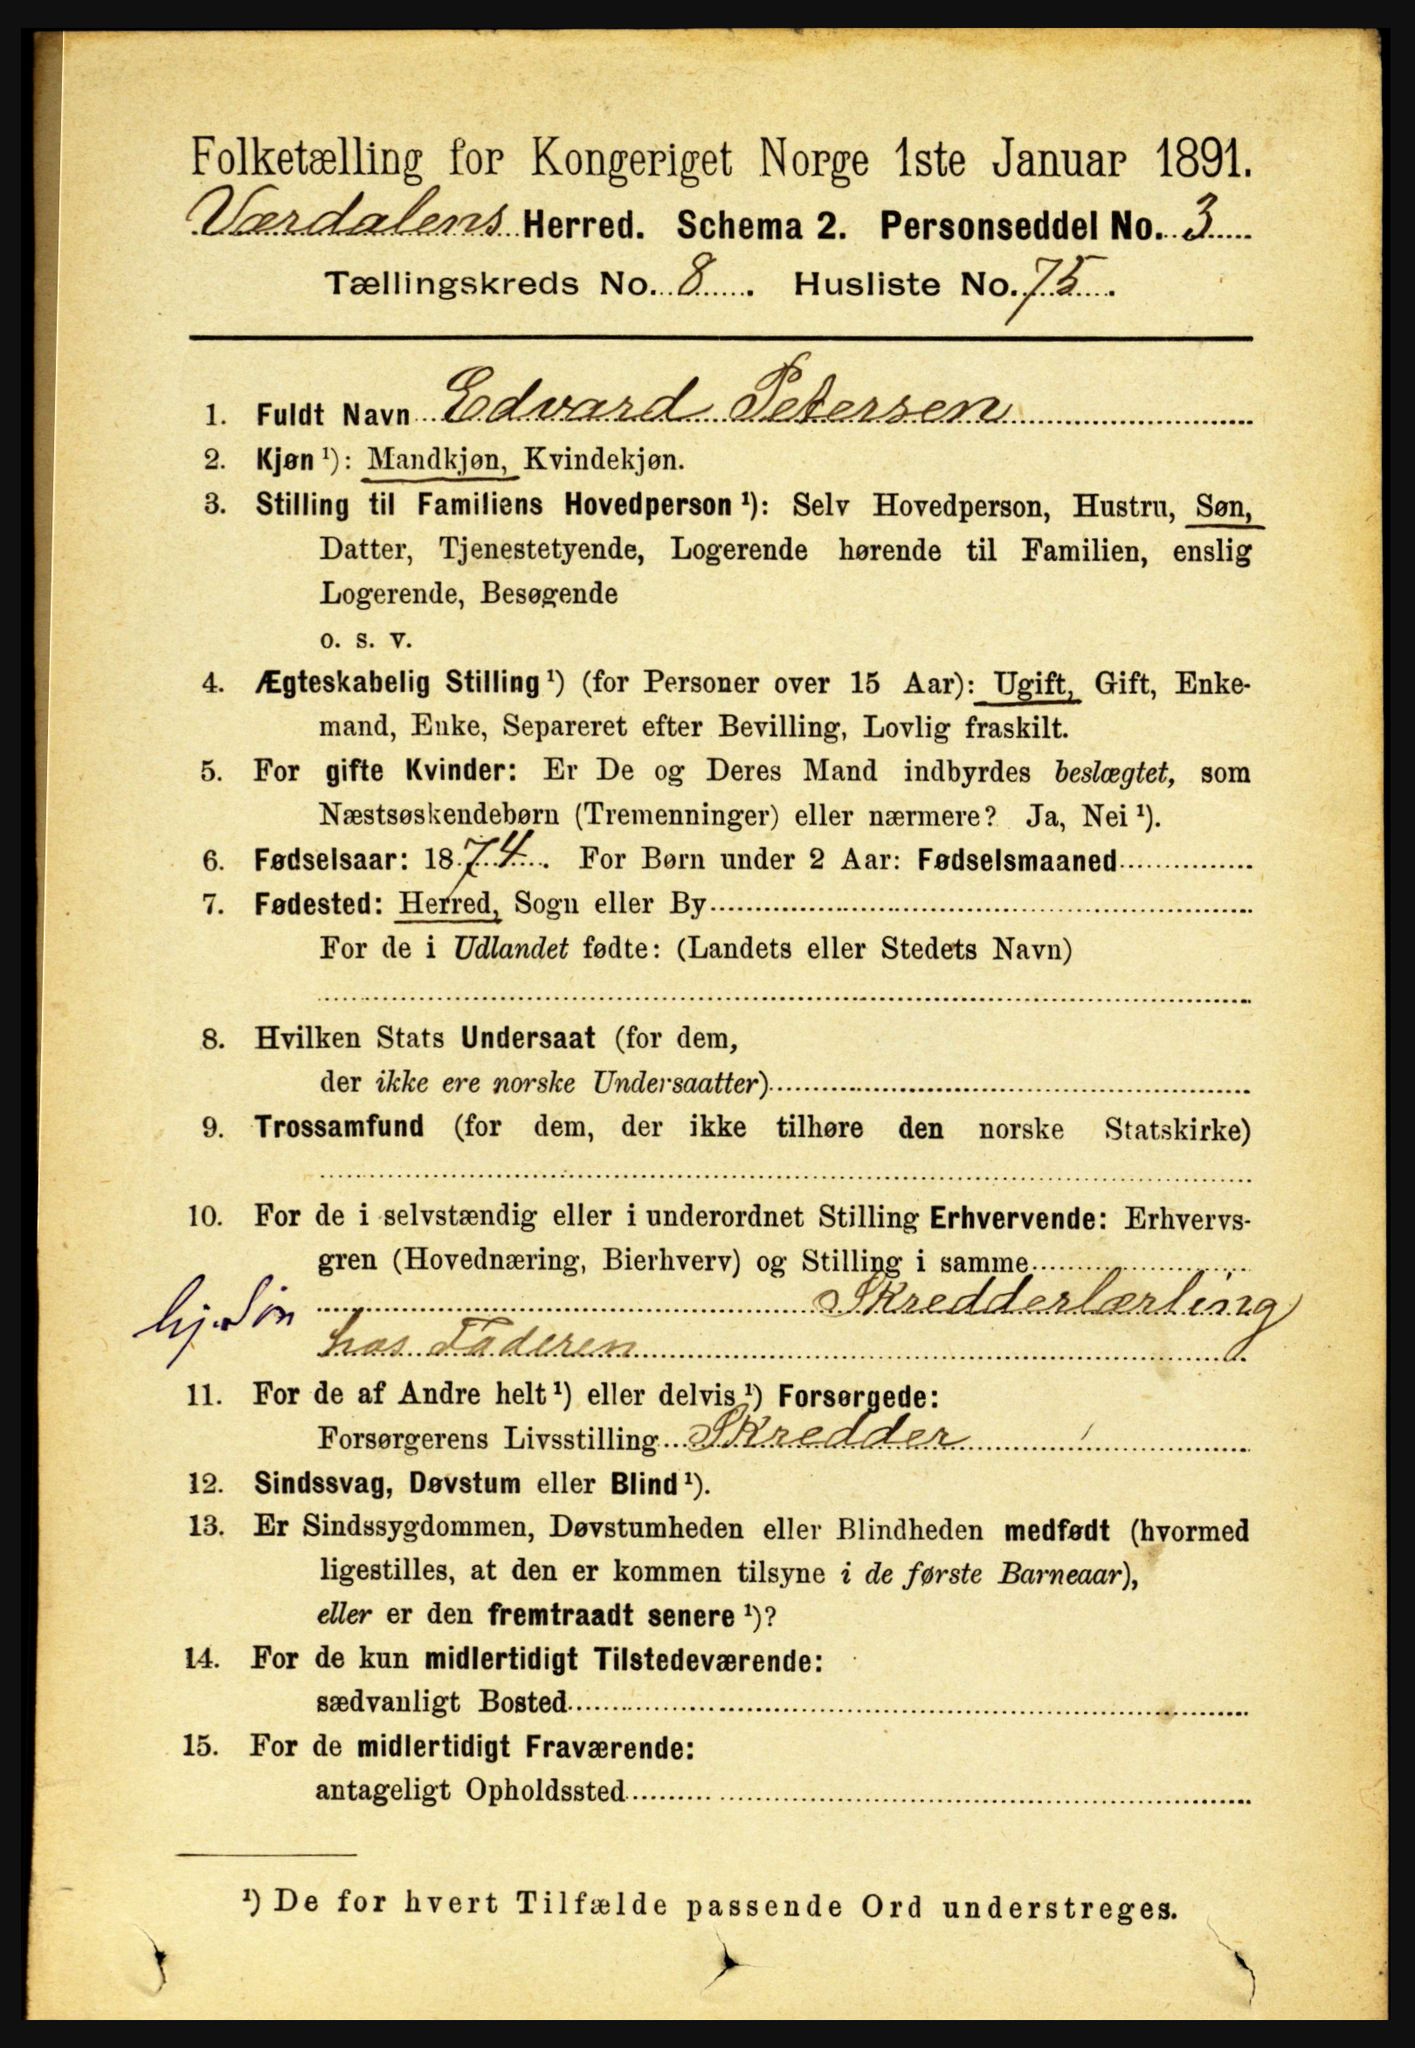 Folketælling for Kongeriget Norge 1ste Januar 1891.
Værdalens Herred. Schema 2. Personseddel No. 3
Tællingskreds No. 8. Husliste No. 75.
1. Fuldt Navn Edvard Petersen
2. Kjøn ¹): Mandkjøn, Kvindekjøn.
3. Stilling til Familiens Hovedperson ¹): Selv Hovedperson, Hustru, Søn,
Datter, Tjenestetyende, Logerende hørende til Familien, enslig
Logerende, Besøgende
o. s. v.
4. Ægteskabelig Stilling ¹) (for Personer over 15 Aar): Ugift, Gift, Enke-
mand, Enke, Separeret efter Bevilling, Lovlig fraskilt.
5. For gifte Kvinder: Er De og Deres Mand indbyrdes beslægtet, som
Næstsøskendebørn (Tremenninger) eller nærmere? Ja, Nei ¹).
6. Fødselsaar: 1874. For Børn under 2 Aar: Fødselsmaaned
7. Fødested: Herred, Sogn eller By
For de i Udlandet fødte: (Landets eller Stedets Navn)
8. Hvilken Stats Undersaat (for dem,
der ikke ere norske Undersaatter)
9. Trossamfund (for dem, der ikke tilhøre den norske Statskirke)
10. For de i selvstændig eller i underordnet Stilling Erhvervende: Erhvervs-
gren (Hovednæring, Bierhverv) og Stilling i samme
hj. Søn Skredderlærling
hos Faderen
11. For de af Andre helt ¹) eller delvis ¹) Forsørgede:
Forsørgerens Livsstilling Skredder
12. Sindssvag, Døvstum eller Blind ¹).
13. Er Sindssygdommen, Døvstumheden eller Blindheden medfødt (hvormed
ligestilles, at den er kommen tilsyne i de første Barneaar),
eller er den fremtraadt senere ¹)?
14. For de kun midlertidigt Tilstedeværende:
sædvanligt Bosted
15. For de midlertidigt Fraværende:
antageligt Opholdssted
¹) De for hvert Tilfælde passende Ord understreges.